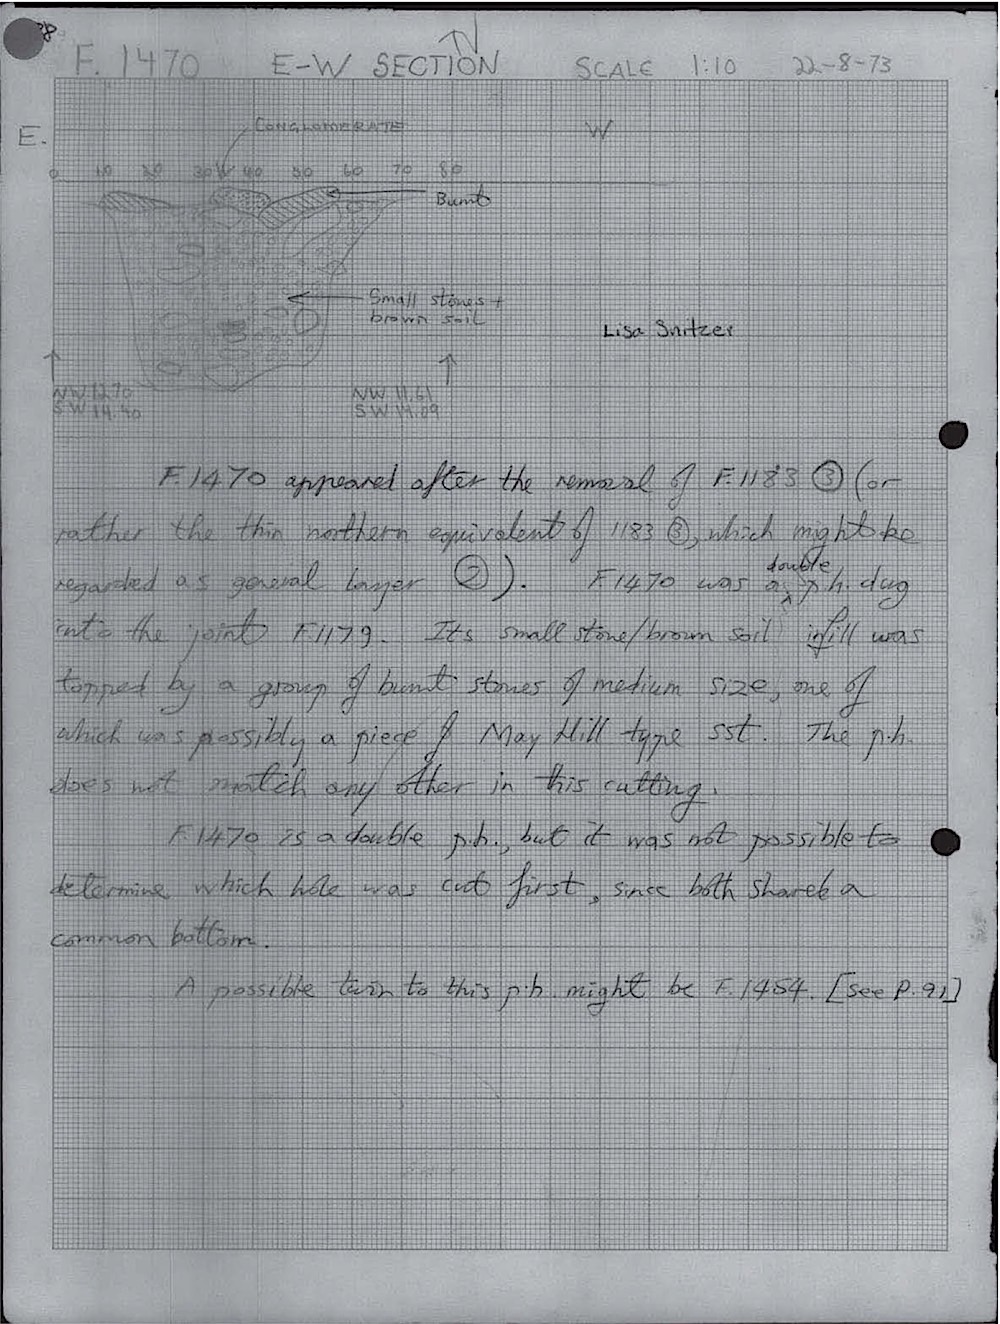 F. 1470 E-W SECTION N SCALE 1:10 22-8-73
E. CONGLOMERATE W
0 10 20 30 40 50 60 70 80
Burnt
Small stones +
brown soil
Lisa Snitzer
NW 12.70 NW 11.61
SW 14.40 SW 14.09
F.1470 appeared after the removal of F.1183 ③ (or
rather the thin northern equivalent of 1183 ③, which might be
regarded as general layer ②). F1470 was a double p.h. dug
into the joint F1179. Its small stone/brown soil infill was
topped by a group of burnt stones of medium size, one of
which was possibly a piece of May Hill type sst. The p.h.
does not match any other in this cutting.
F.1470 is a double p.h., but it was not possible to
determine which hole was cut first, since both shared a
common bottom.
A possible twin to this p.h. might be F.1454. [see P. 91]